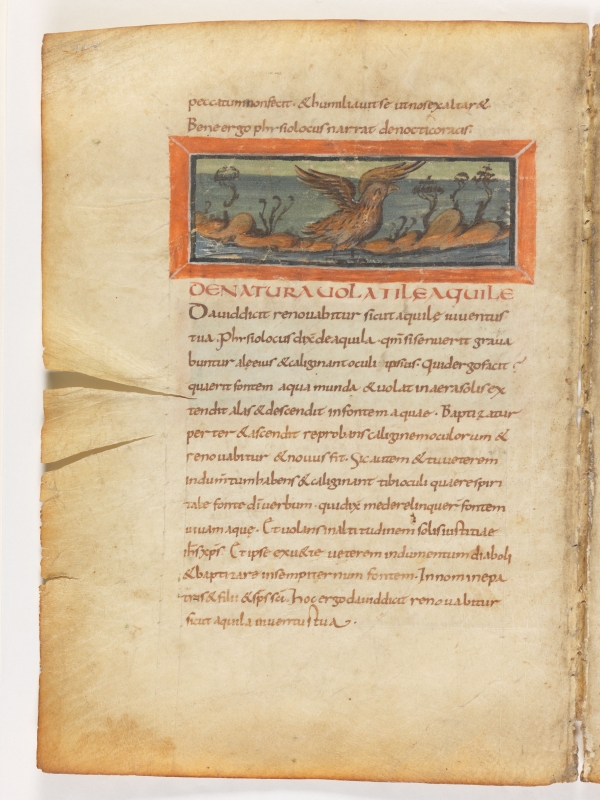 peccatum non fecit · & humiliavit se ut nos exaltar&
Bene ergo phisiolocus narrat de nocticoracis.
DE NATURA UOLATILE AQUILE
David dicit renovabitur sicut aquilę iuventus
tua. Phisiolocus dix̄ de aquila · qm̄ si senuerit grava
buntur alę eius & caliginant oculi ipsius · Quid ergo facit?
quaerit fontem aqua munda & volat in aera solis ex
tendit alas & descendit in fontem aquae · Baptizatur
per ter & ascendit reprobans caliginem oculorum &
renovabitur & novus fit. Sic autem & tu veterem
indum̄tum habens & caliginant tibi oculi quaere spiri
tale fonte dī verbum · qui dix̄ me derelinquer̄ fontem
vivam aquę · Et volans in altitudinem solis iustitiae
ih̄s xp̄s. Et ipse exu&te veterem indumentum diaboli
& baptizare in sempiternum fontem. In nomine pa
tris & filii & sp̄s sc̄i. Hoc ergo david dicit renovabitur
sicut aquila iuventus tua.